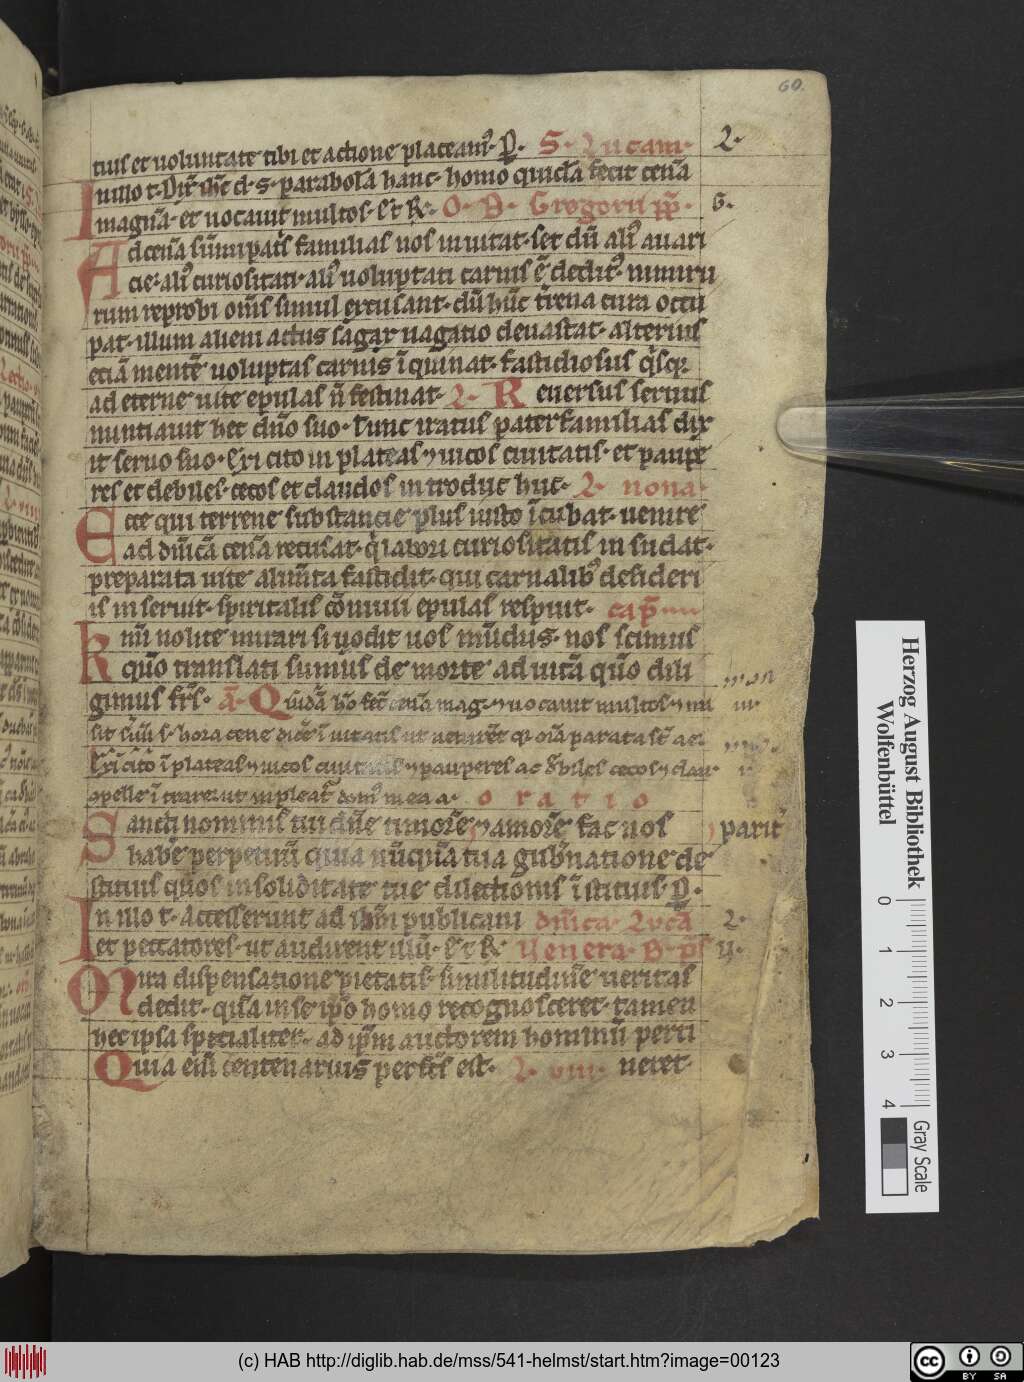 60.
tius et uoluntate tibi et actione placeam᷒. P̲. S. Lucam. 2.
In illo t. Dix̄ ih̄c d. s. parabolā hanc. homo quidā fecit cenā
magnā. et uocauit multos. Et R̄. O. B. Gregorii p̄p̄. G.
Ad cenā sūmi pat̄s familias uos inuitat. set dū ali᷒ auari
cie. ali᷒ curiositati. ali᷒ uoluptati carnis ē dedit᷒. nimiru
rum reprobi om̄s simul excusant. dū hūc trena cura occu
pat. illum alieni actus sagax uagatio deuastat. alterius
eciā mentē uoluptas carnis īquinat. fastidiosus q̇sq;
ad eterne uite epulas n̄ festinat. 2. Reuersus seruus
nuntiauit hec dn̄o suo. Tunc iratus paterfamilias dix
it seruo suo. Exi cito in plateas ⁊ uicos ciuitatis. et paupe
res et debiles. cecos et claudos introduc huc. 2. nona.
Ecce qui terrene substancie plus iusto īcubat. uenire
ad dn̄icā cenā recusat. q̇ labori curiositatis insudat.
preparata uite alim̄ta fastidit. qui carnalib᷒ desideri
is inseruit. spiritalis cōuiuii epulas respuit. cap̄
nū nolite mirari si uodit uos mūdus. nos scimus
quō translati sumus de morte ad uitā quō dili
gimus fr̄s. ā. Quidā hō fec̄ cenā mag. ⁊ uocauit multos. ⁊ mi
sit sūū s. hora cene dicē īuitatis ut uenirēt q̄ oīa parata st̄ ae.
Exi cito ī plateas ⁊ uicos ciuitatis ⁊ pauperes ac debiles cecos ⁊ clau.
9pelle ītrare. ut inpleat̄ dom᷒ mea a. oratio
Sancti nominis tui dn̄e timorē ⁊ amorē fac nos parit̄
habē perpetuū quia nūquā tua gub̄natione de
stituis quos in soliditate tue dilectionis īstituis. P̲.
In illo t. Accesserunt ad ih̄m publicani dn̄ica. Lucā 2.
et peccatores. ut audirent illū. Et R̄ Venera. B. p̄s
Mira dispensatione pietatis. similitudinē ueritas
dedit. q̇sa in se ip̄o homo recognosceret. tamen
hec ipsa specialiter. ad ip̄m auctorem hominū perti
Quia eiū centenarius perfc̄s est. 2. viii. neret.
Herzog August Bibliothek
Wolfenbüttel
0 1 2 3 4
Gray Scale
(c) HAB http://diglib.hab.de/mss/541-helmst/start.htm?image=00123
cc BY SA